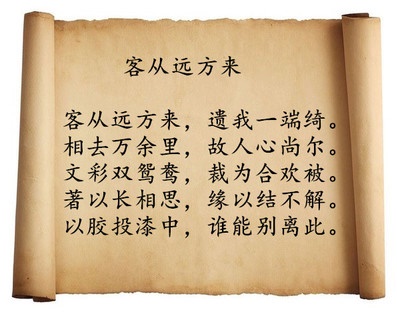 客从远方来
客从远方来，遗我一端绮。
相去万余里，故人心尚尔。
文彩双鸳鸯，裁为合欢被。
著以长相思，缘以结不解。
以胶投漆中，谁能别离此。